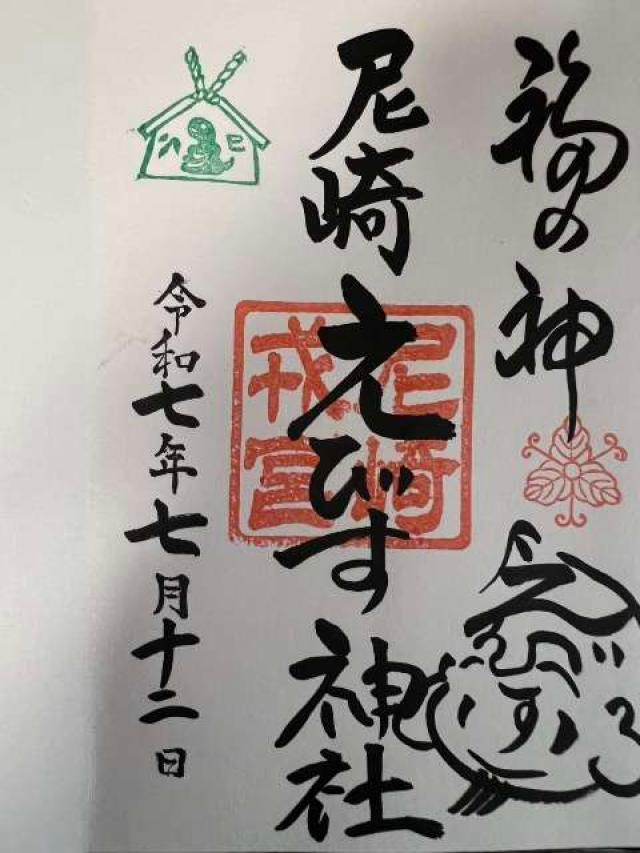 福の神
えびす
尼崎えびす神社
尼崎
戎宮
令和七年七月十二日